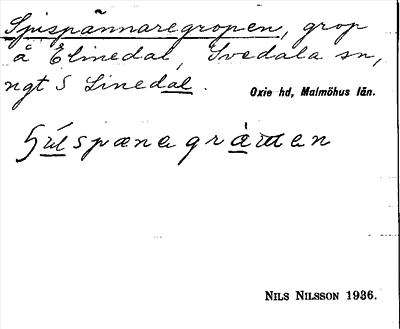 Spispännaregropen, grop
å Elinedal, Svedala sn,
ngt S Linedal.
Oxie hd, Malmöhus län.
NILS NILSSON 1936.